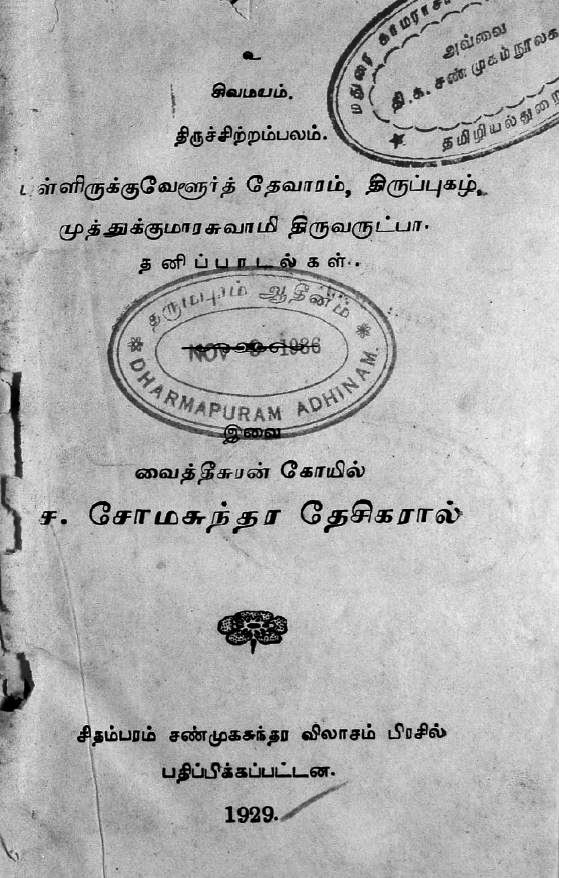 உ
சிவமயம்.
திருச்சிற்றம்பலம்.
ள்ளிருக்குவேளூர்த் தேவாரம், திருப்புகழ்,
முத்துக்குமாரசுவாமி திருவருட்பா.
தனிப்பாடல்கள்.
இவை
வைத்தீசுரன் கோயில்
ச. சோமசுந்தர தேசிகரால்
சிதம்பரம் சண்முகசுந்தர விலாசம் பிரசில்
பதிப்பிக்கப்பட்டன.
1929.
மதுரை காமராசர்
அவ்வை
தி. க. சண்முகம் நூலக
தமிழியல் துறை
தருமபுரம் ஆதீனம்
NOV 1986
DHARMAPURAM ADHINAM.